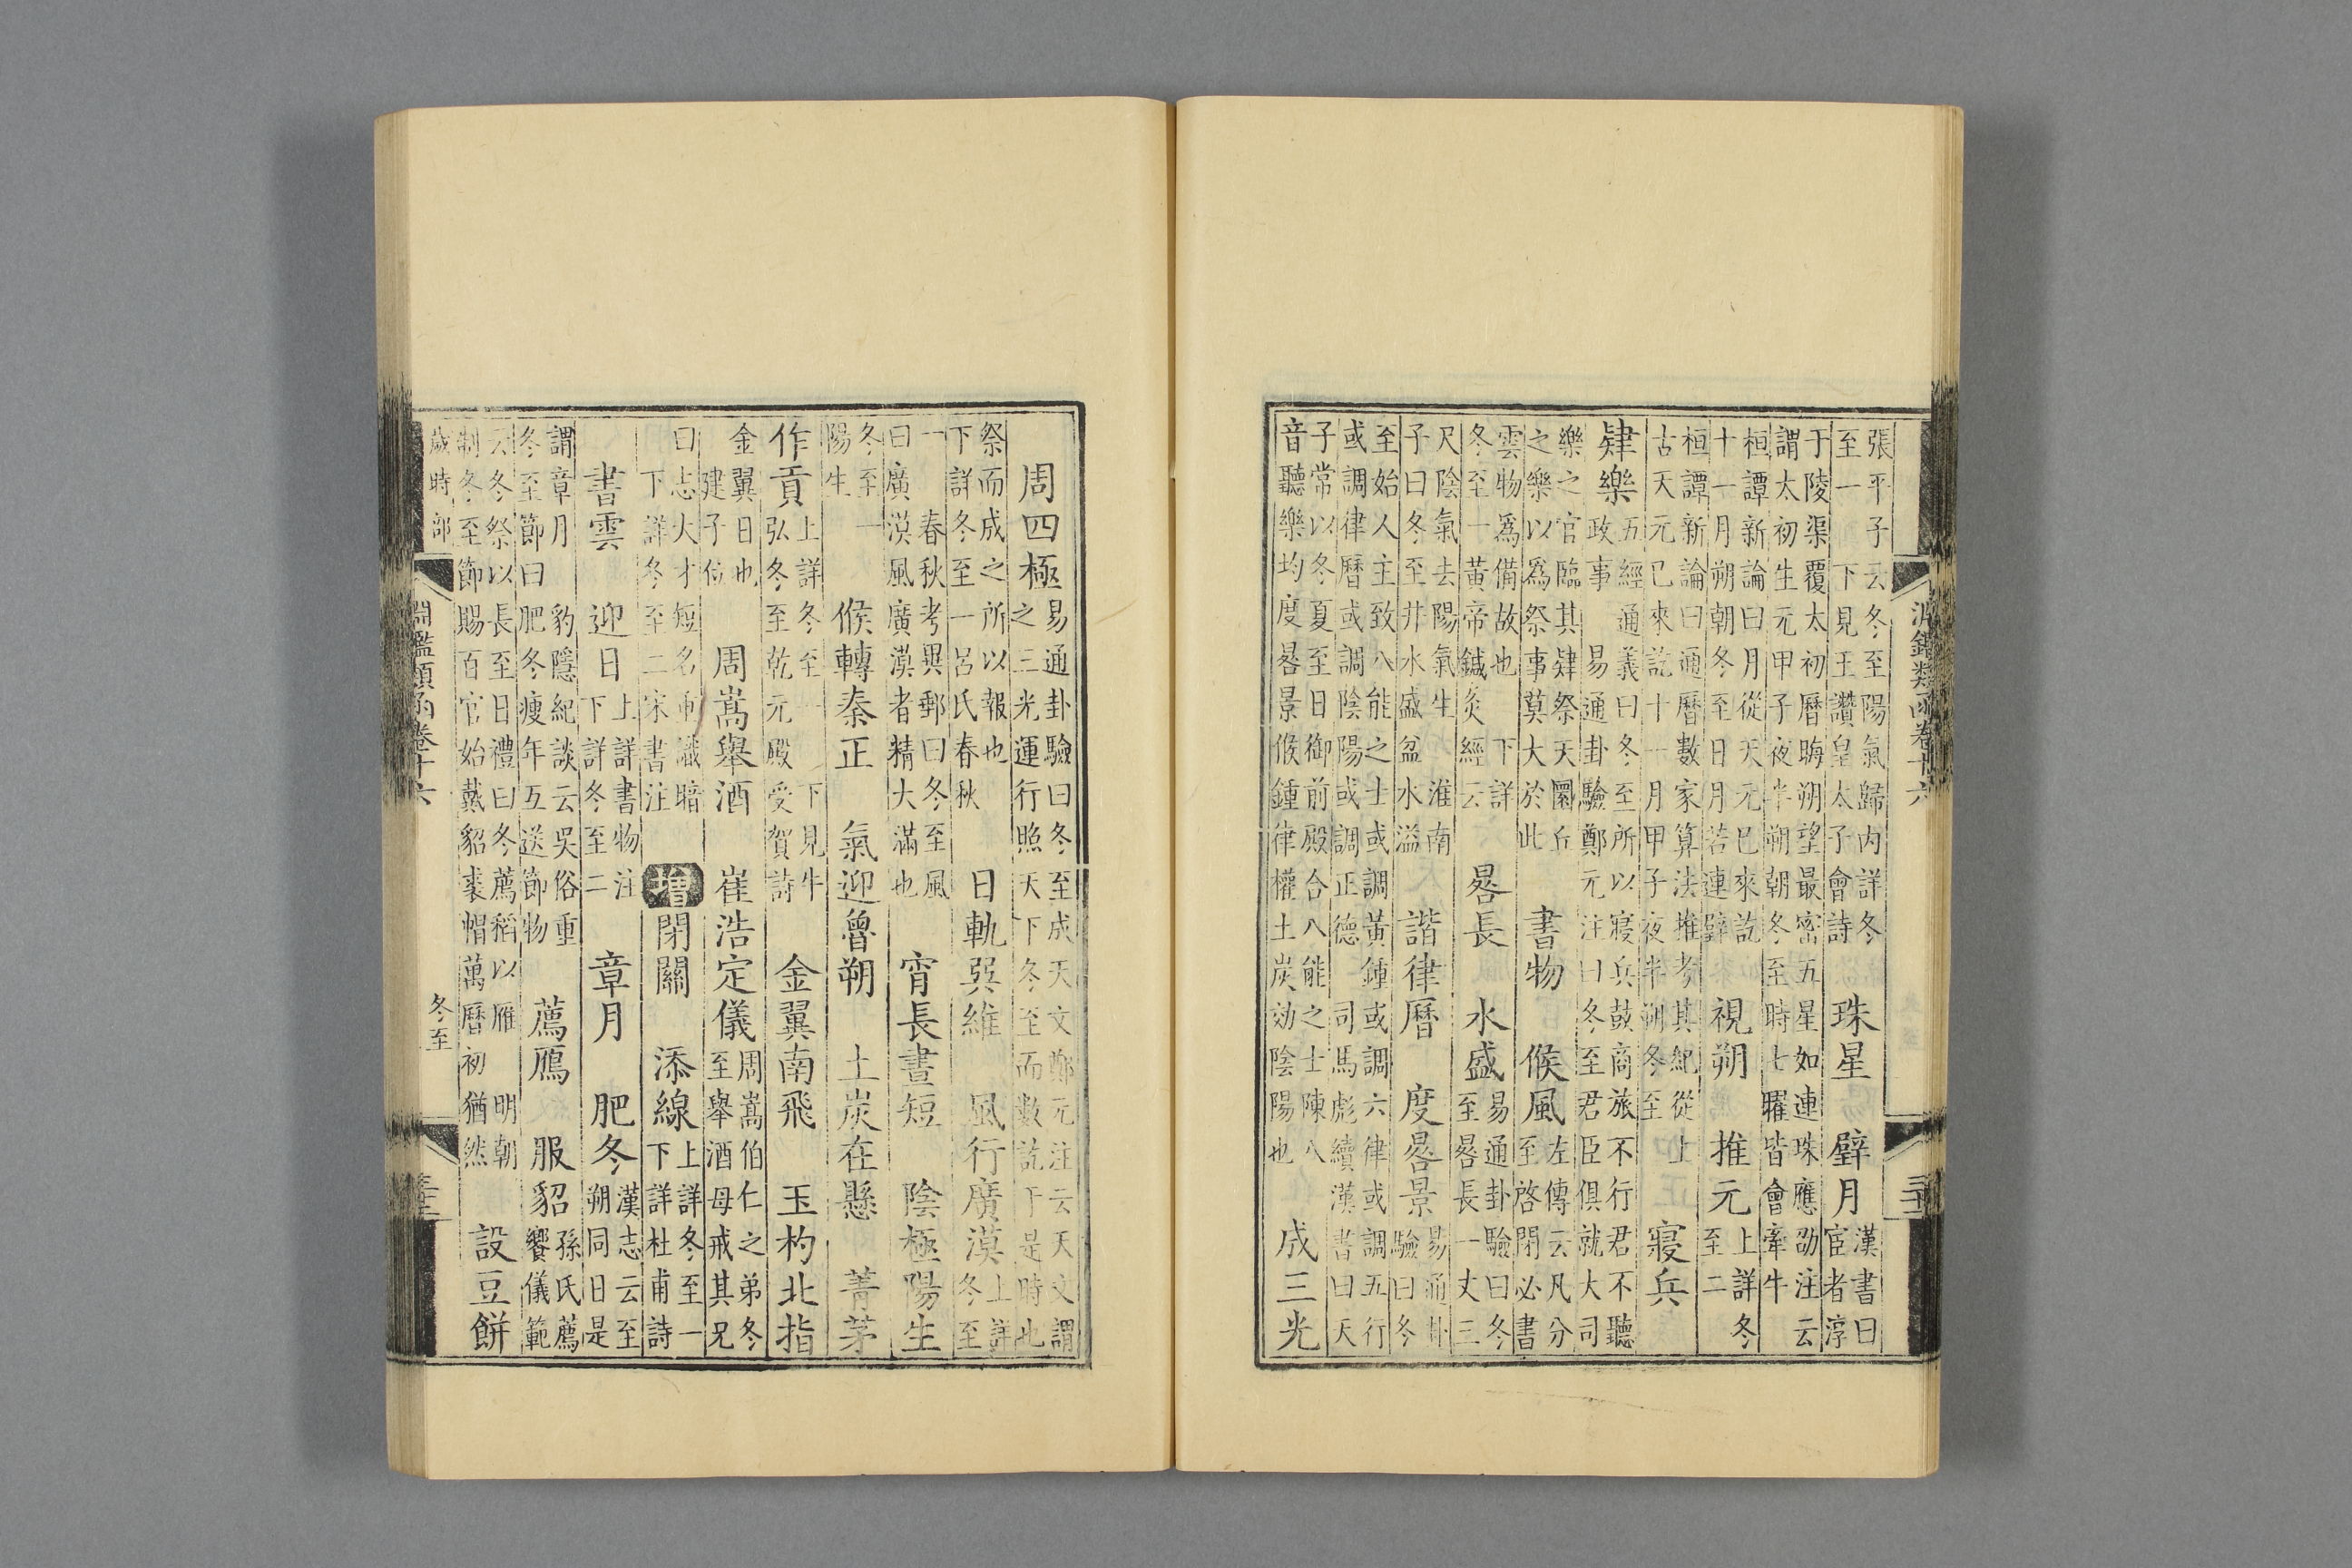 淵鑑類函卷十六
張平子云冬至陽氣歸内詳冬至一 下見王讚皇太子會詩 珠星 璧月 漢書曰宦者淳
于陵渠覆太初曆晦朔望最密五星如連珠應劭注云謂太初生元甲子夜半朔朝冬至時七曜皆會牽牛
桓譚新論曰月從天元已來訖十一月朔朝冬至日月若連璧 視朔 推元 上詳冬至二
桓譚新論曰通曆數家算法推考其紀從上古天元已來訖十一月甲子夜半朔冬至 寢兵
肄樂 五經通義曰冬至所以寢兵鼓商旅不行君不聽政事 易通卦驗鄭元注曰冬至君臣俱就大司
樂之官臨其肄祭天圜丘之樂以爲祭事莫大於此 書物 候風 左傳云凡分至啓閉必書
雲物爲備故也 下詳冬至一 黃帝鍼灸經云 晷長 水盛 易通卦驗曰冬至晷長一丈三
尺陰氣去陽氣生 淮南子曰冬至井水盛盆水溢 諧律曆 度晷景 易通卦驗曰冬
至始人主致八能之士或調黃鍾或調六律或調五行或調律曆或調陰陽或調正德 司馬彪續漢書曰天
子常以冬夏至日御前殿合八能之士陳八音聽樂均度晷景候鍾律權土炭効陰陽也 成三光
周四極 易通卦驗曰冬至成天文鄭元注云天文謂之三光運行照天下冬至而數訖于是時也
祭而成之所以報也下詳冬至一 呂氏春秋 日軌巽維 風行廣漠 上詳冬至
一 春秋考異郵曰冬至風曰廣漠風廣漠者精大滿也 宵長晝短 陰極陽生
冬至一陽生 候轉秦正 氣迎魯朔 土炭在懸 菁茅
作貢 上詳冬至一 下見牛弘冬至乾元殿受賀詩 金翼南飛 玉杓北指
金翼日也建子位 周嵩舉酒 崔浩定儀 周嵩伯仁之弟冬至舉酒母戒其兄
曰志大才短名重識暗下詳冬至二宋書注 增 閉關 添線 上詳冬至一下詳杜甫詩
書雲 迎日 上詳書物注下詳冬至二 章月 肥冬 漢志云至朔同日是
謂章月 豹隱紀談云吳俗重冬至節曰肥冬瘦年互送節物 薦鴈 服貂 孫氏薦饗儀範
云冬祭以長至日禮曰冬薦稻以雁 明朝制冬至節賜百官始戴貂裘帽萬曆初猶然 設豆餅
歲時部 淵鑑類函卷十六 冬至